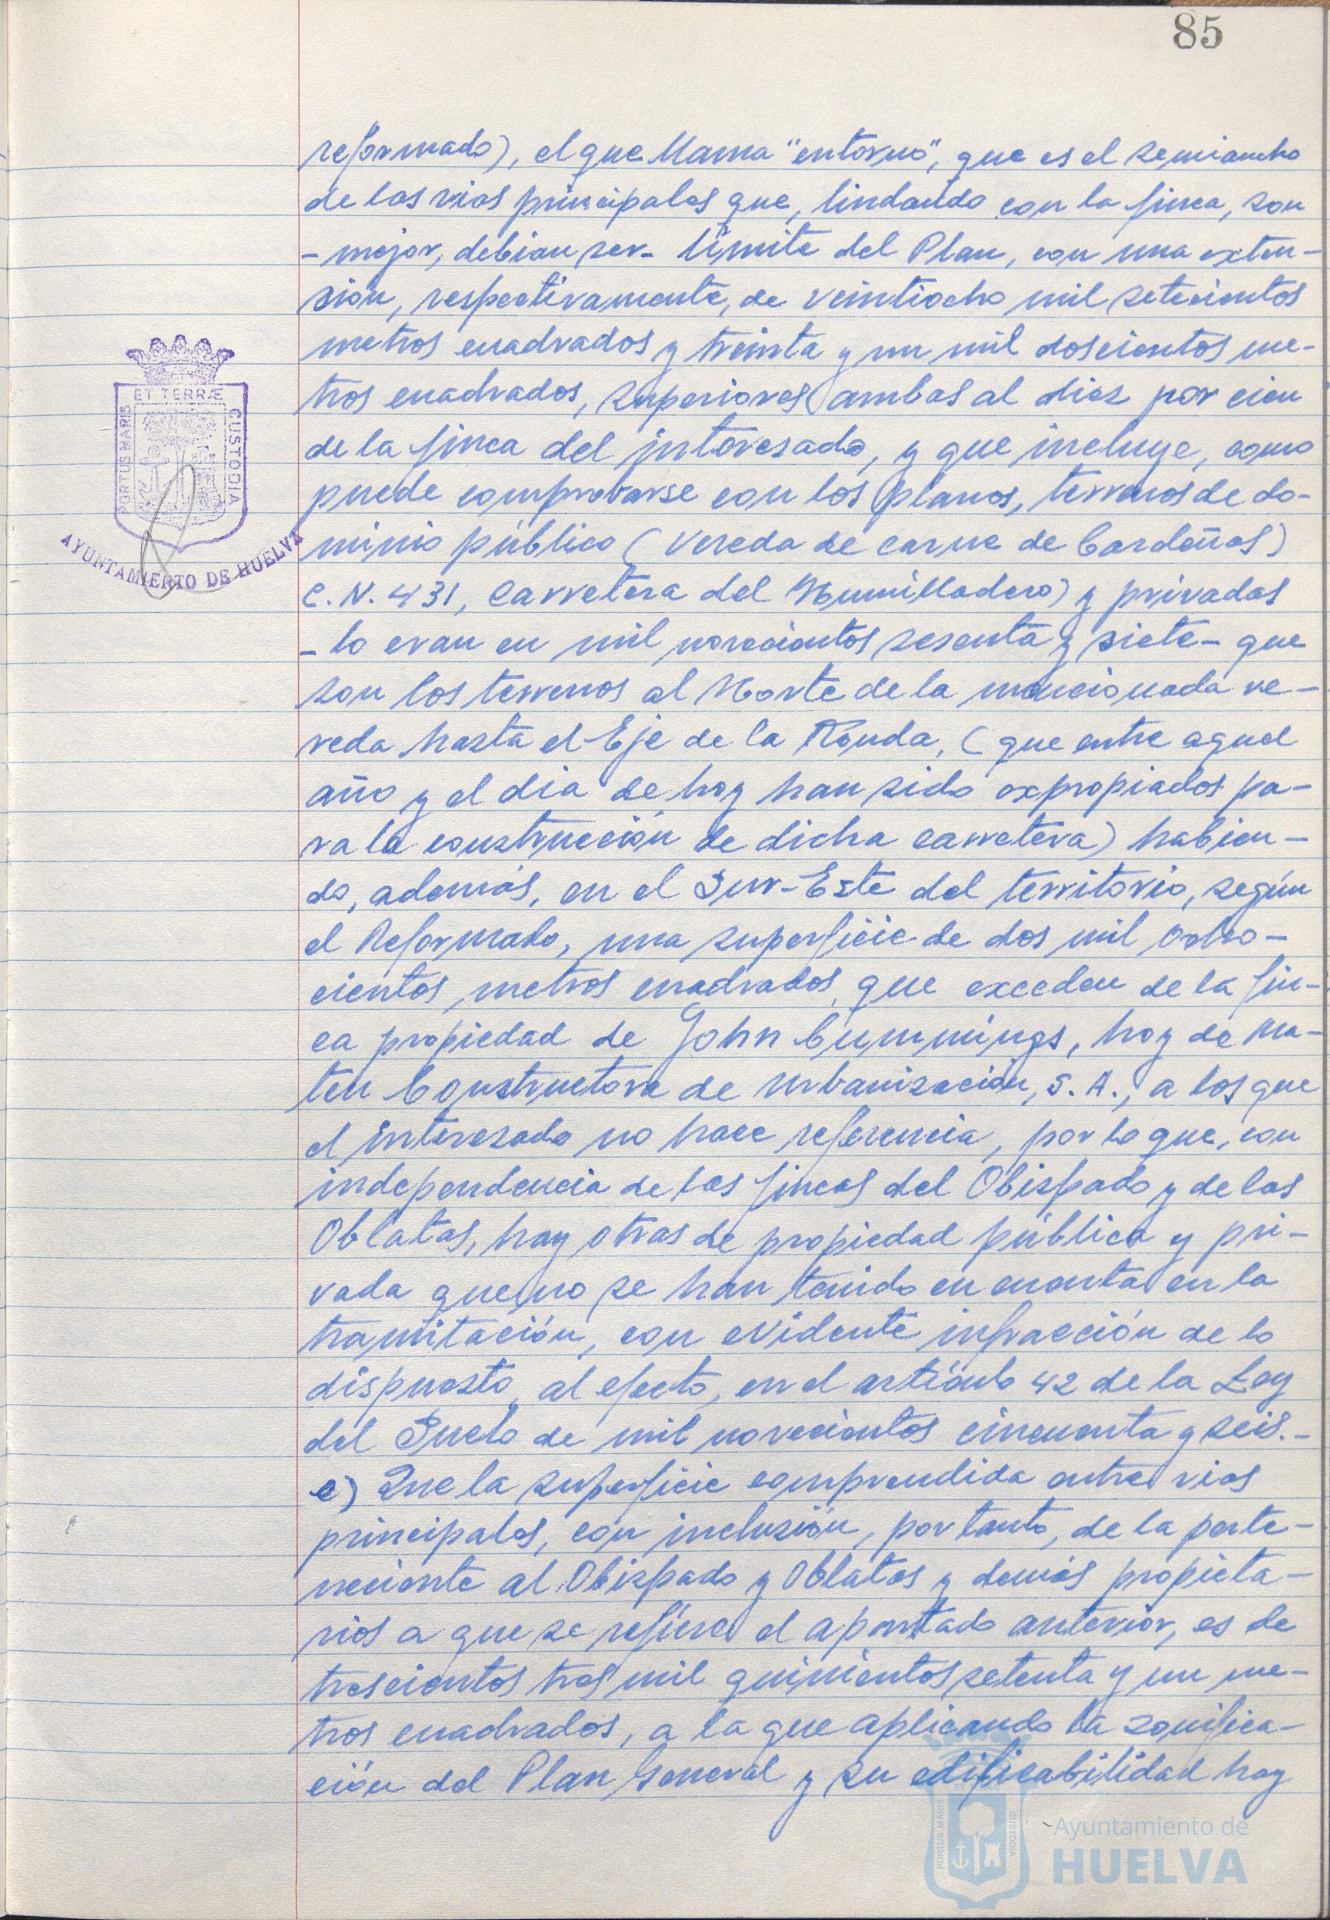 85
reformado), el que llama "entorno", que es el semiancho
de las vias principales que, lindando con la finca, son
- mejor, debian ser - límite del Plan, con una exten-
sión, respectivamente, de veintiocho mil setecientos
metros cuadrados y treinta y un mil doscientos me-
tros cuadrados, superiores ambas al diez por cien
de la finca del interesado, y que incluye, como
puede comprobarse con los planos, terrenos de do-
minio público (Vereda de carne de Cardeñas)
C.N. 431, Carretera del Humilladero) y privadas
- lo eran en mil novecientos sesenta y siete - que
son los terrenos al Norte de la mencionada ve-
reda hasta el Eje de la Ronda, (que entre aquel
año y el dia de hoy han sido expropiados pa-
ra la construcción de dicha carretera) habien-
do, además, en el Sur-Este del territorio, según
el Reformado, una superficie de dos mil ocho-
cientos metros cuadrados que exceden de la fin-
ca propiedad de John Cummings, hoy de Ma-
ten Constructora de Urbanización, S.A., a los que
el interesado no hace referencia, por lo que, con
independencia de las fincas del Obispado y de las
Oblatas, hay otras de propiedad pública y pri-
vada que no se han tenido en cuenta en la
tramitación, con evidente infracción de lo
dispuesto, al efecto, en el artículo 42 de la Ley
del Suelo de mil novecientos cincuenta y seis.-
e) Que la superficie comprendida entre vias
principales, con inclusión, por tanto, de la perte-
neciente al Obispado y Oblatas y demás propieta-
rios a que se refiere el apartado anterior, es de
trescientos tres mil quinientos setenta y un me-
tros cuadrados, a la que aplicando la zonifica-
ción del Plan General y su edificabilidad hay
ET TERRÆ
PORTUS MARIS
CUSTODIA
AYUNTAMIENTO DE HUELVA
PORTUS MARIS
CUSTODIA
Ayuntamiento de
HUELVA